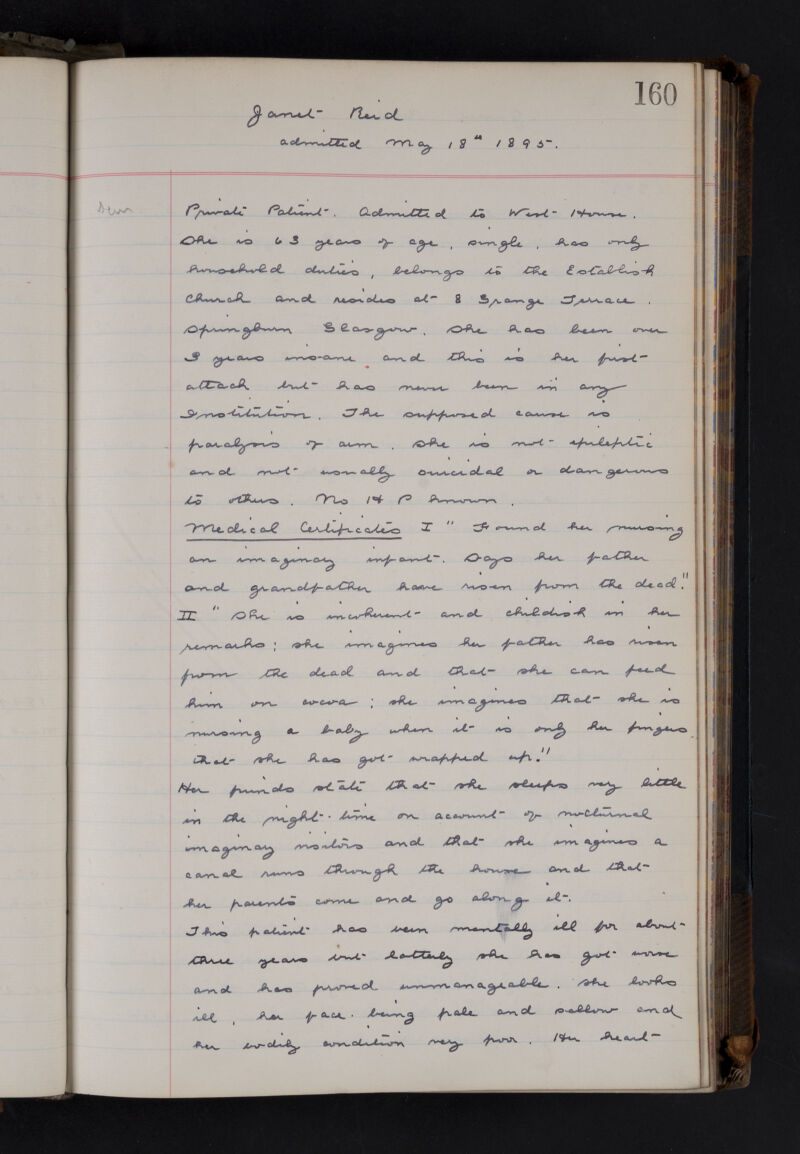 160
Janet Reid
admitted May 18th 1895.
Private Patient. Admitted to West House.
She is 63 years of age, single, has only
household duties, belongs to the Establish
Church and resides at 8 Grange Terrace.
Springburn Glasgow. She has been over
3 years insane and this is her first
attack but has never been in any
Institution. The supposed cause is
paralysis of arm. She is not epileptic
and not usually suicidal or dangerous
to others. No H P known.
Medical Certificates I " Found her nursing
an imaginary infant. Says her father
and grandfather have risen from the dead."
II " She is incoherent and childish in her
remarks; she imagines her father has risen
from the dead and that she can feed
him on cocoa; she imagines that she is
nursing a baby when it is only her fingers
that she has got wrapped up."
Her friends state that she sleeps very little
in the night-time on account of nocturnal
imaginary visitors and that she imagines a
canal runs through the house and that
her parents come and go along it.
This patient has been mentally ill for about
three years but latterly she has got worse
and has proved unmanageable. She looks
ill, her face being pale and sallow and
her bodily condition very poor. Her heart